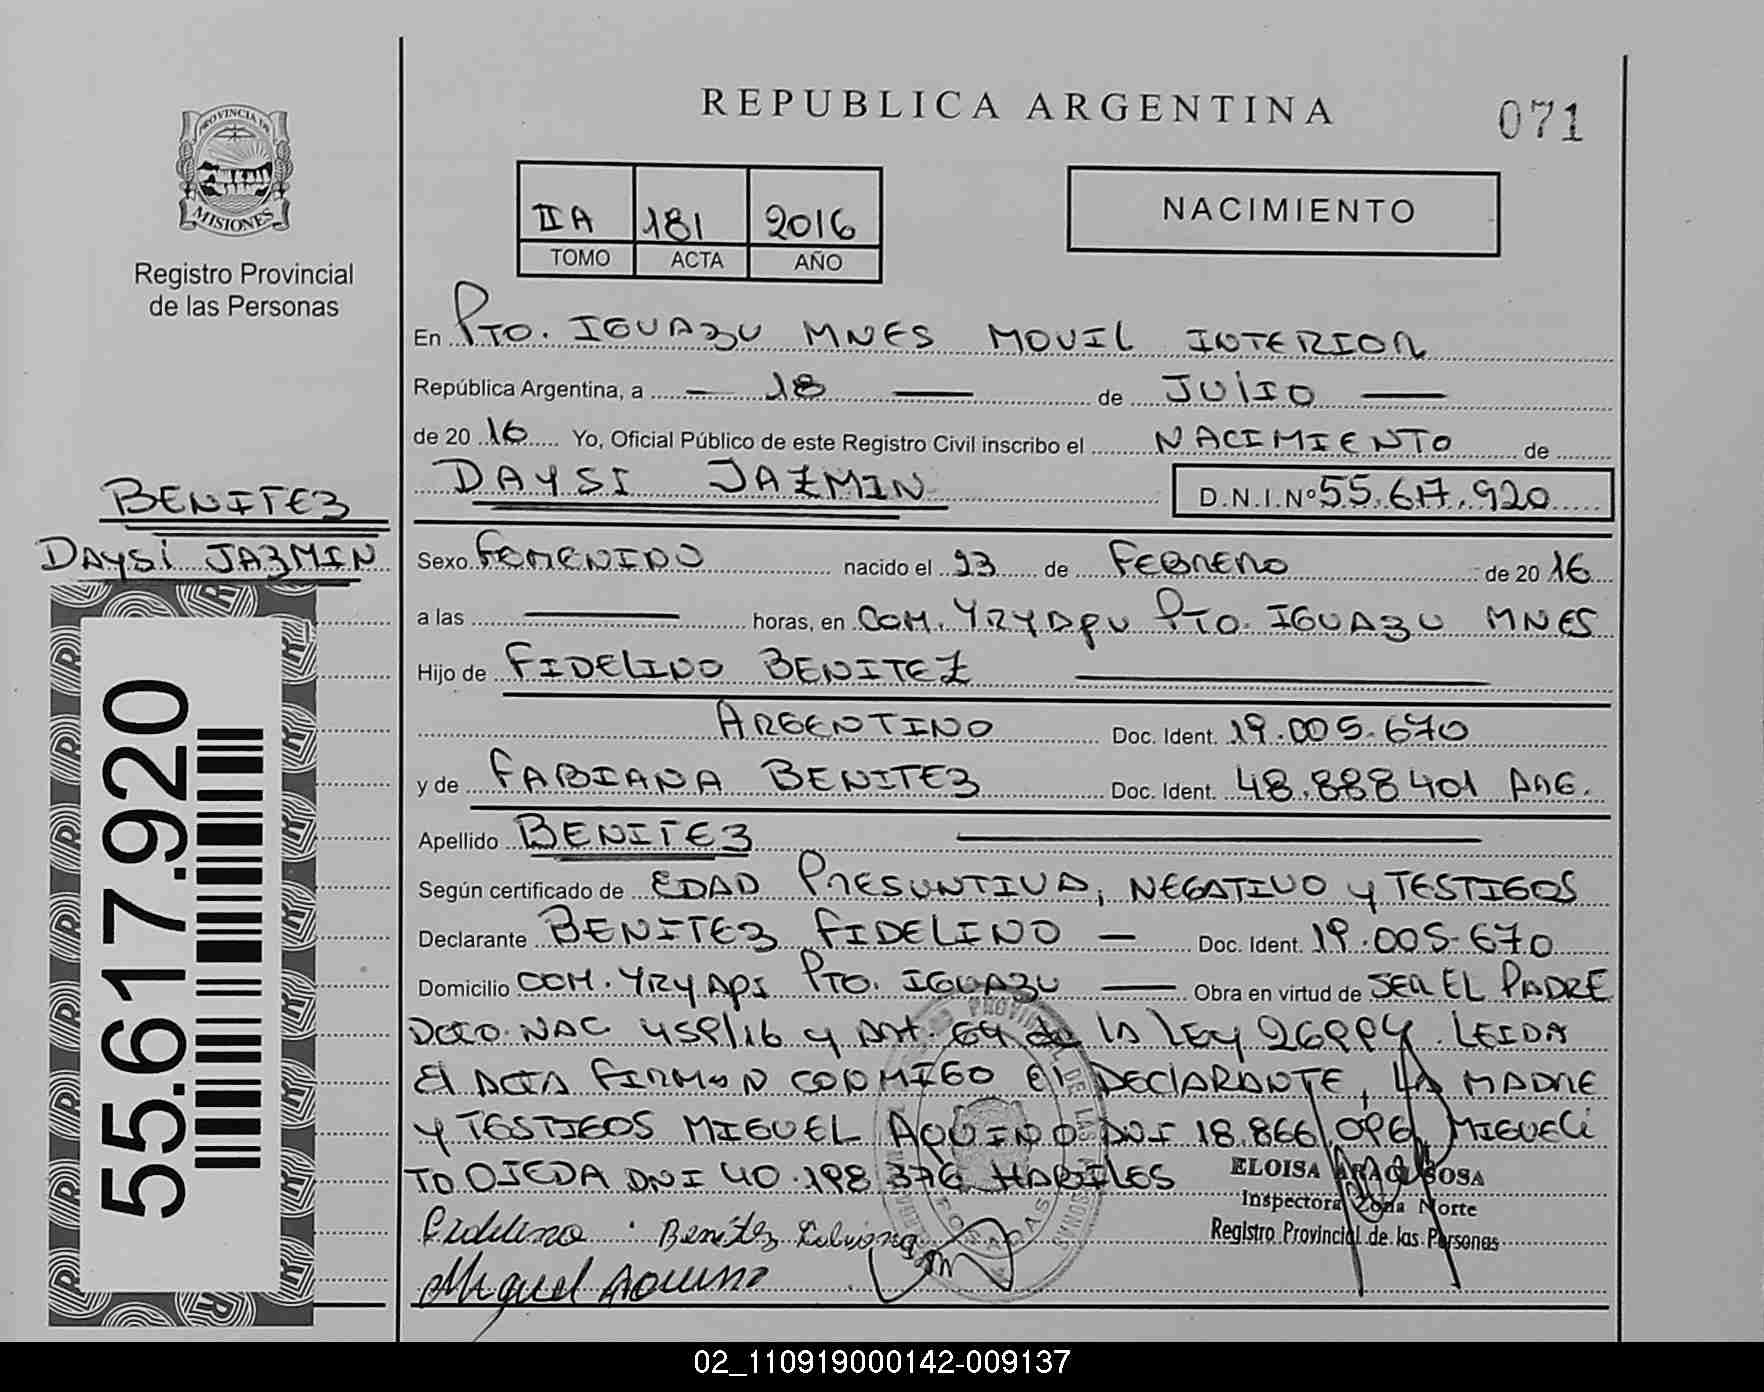 REPUBLICA ARGENTINA
071
PROVINCIA DE
MISIONES
Registro Provincial
de las Personas
IIA 181 2016
TOMO ACTA AÑO
NACIMIENTO
En Pto. IGUAZU MNES MOVIL INTERIOR
República Argentina, a — 18 — de JUlIO —
de 20 16 Yo, Oficial Público de este Registro Civil inscribo el NACIMIENTO de
DAYSI JAZMIN D.N.I.Nº 55.617.920
BENITEZ
DAYSI JAZMIN
Sexo FEMENINO nacido el 23 de FEBRERO de 20 16
a las — horas, en COM. YRYAPU Pto. IGUAZU MNES
Hijo de FIDELINO BENITEZ —
ARGENTINO Doc. Ident. 19.005.670
y de FABIANA BENITEZ Doc. Ident. 48.888401 ARG.
Apellido BENITEZ —
Según certificado de EDAD PRESUNTIVA, NEGATIVO y TESTIGOS
Declarante BENITEZ FIDELINO — Doc. Ident. 19.005.670
Domicilio COM. YRYAPI Pto. IGUAZU — Obra en virtud de SER EL PADRE
DCTO. NAC 459/16 y Art. 64 de LA LEY 26994. LEIDA
El ACTA FIRMAN CONMIGO El DECLARANTE, LA MADRE
Y TESTIGOS MIGUEL AQUINO DNI 18.866.096, MIGUELI
TO OJEDA DNI 40.198.376 HABILES
ELOISA SOSA
Inspectora Zona Norte
Registro Provincial de las Personas
Fidelino Benitez Fabiana
Miguel Aquino
55.617.920
02_110919000142-009137